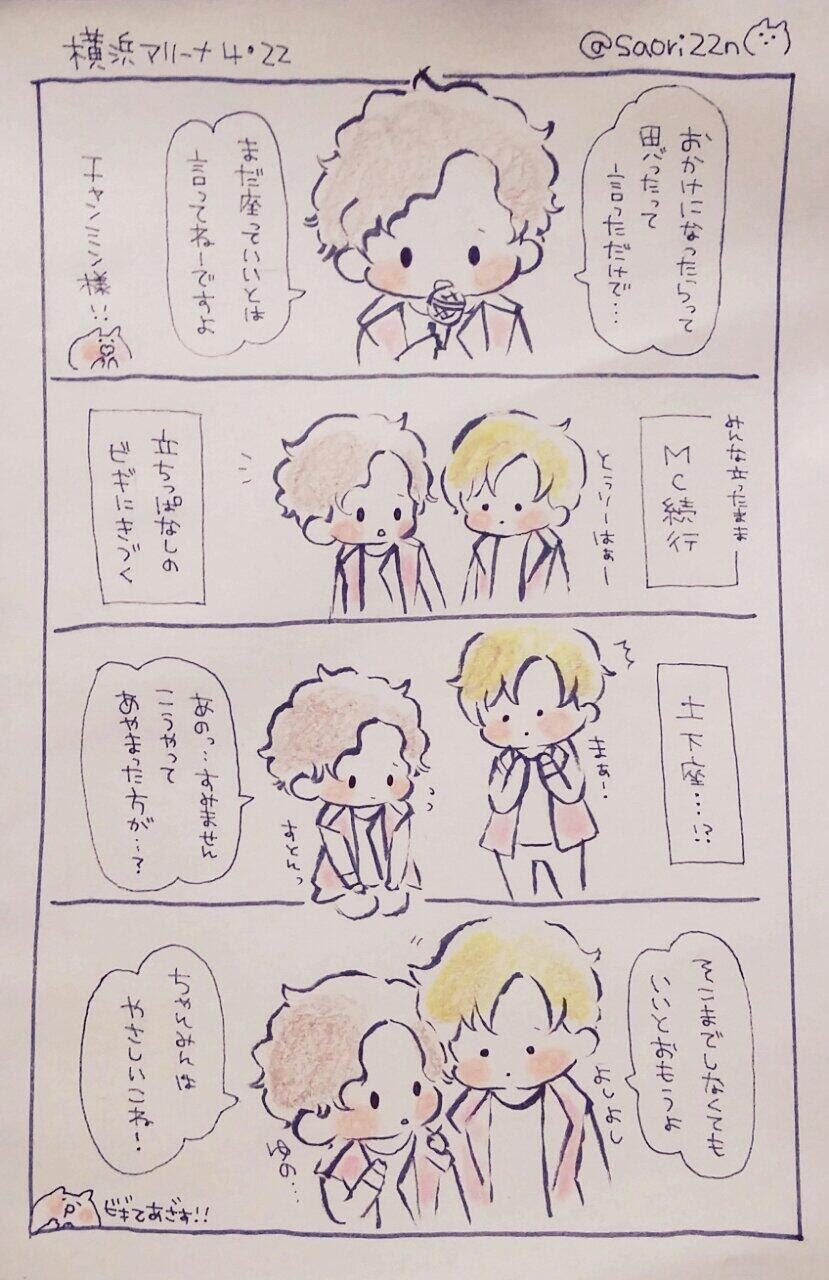 横浜アリーナ4・22
@saori22n
おかけになったらって
思ったって
言っただけで…
まだ座っていいとは
言ってねーですよ
チャンミン様!!
みんな立ったまま
MC続行
とぅりーはぁー
立ちっぱなしの
ビギにきづく
土下座…!?
まぁー.
あのっ…すみません
こうやって
あやまった方が…?
すとんっ
そこまでしなくても
いいとおもうよ
よしよし
ちゃんみんは
やさしいこね!
ゆの…
ビギてあざす!!